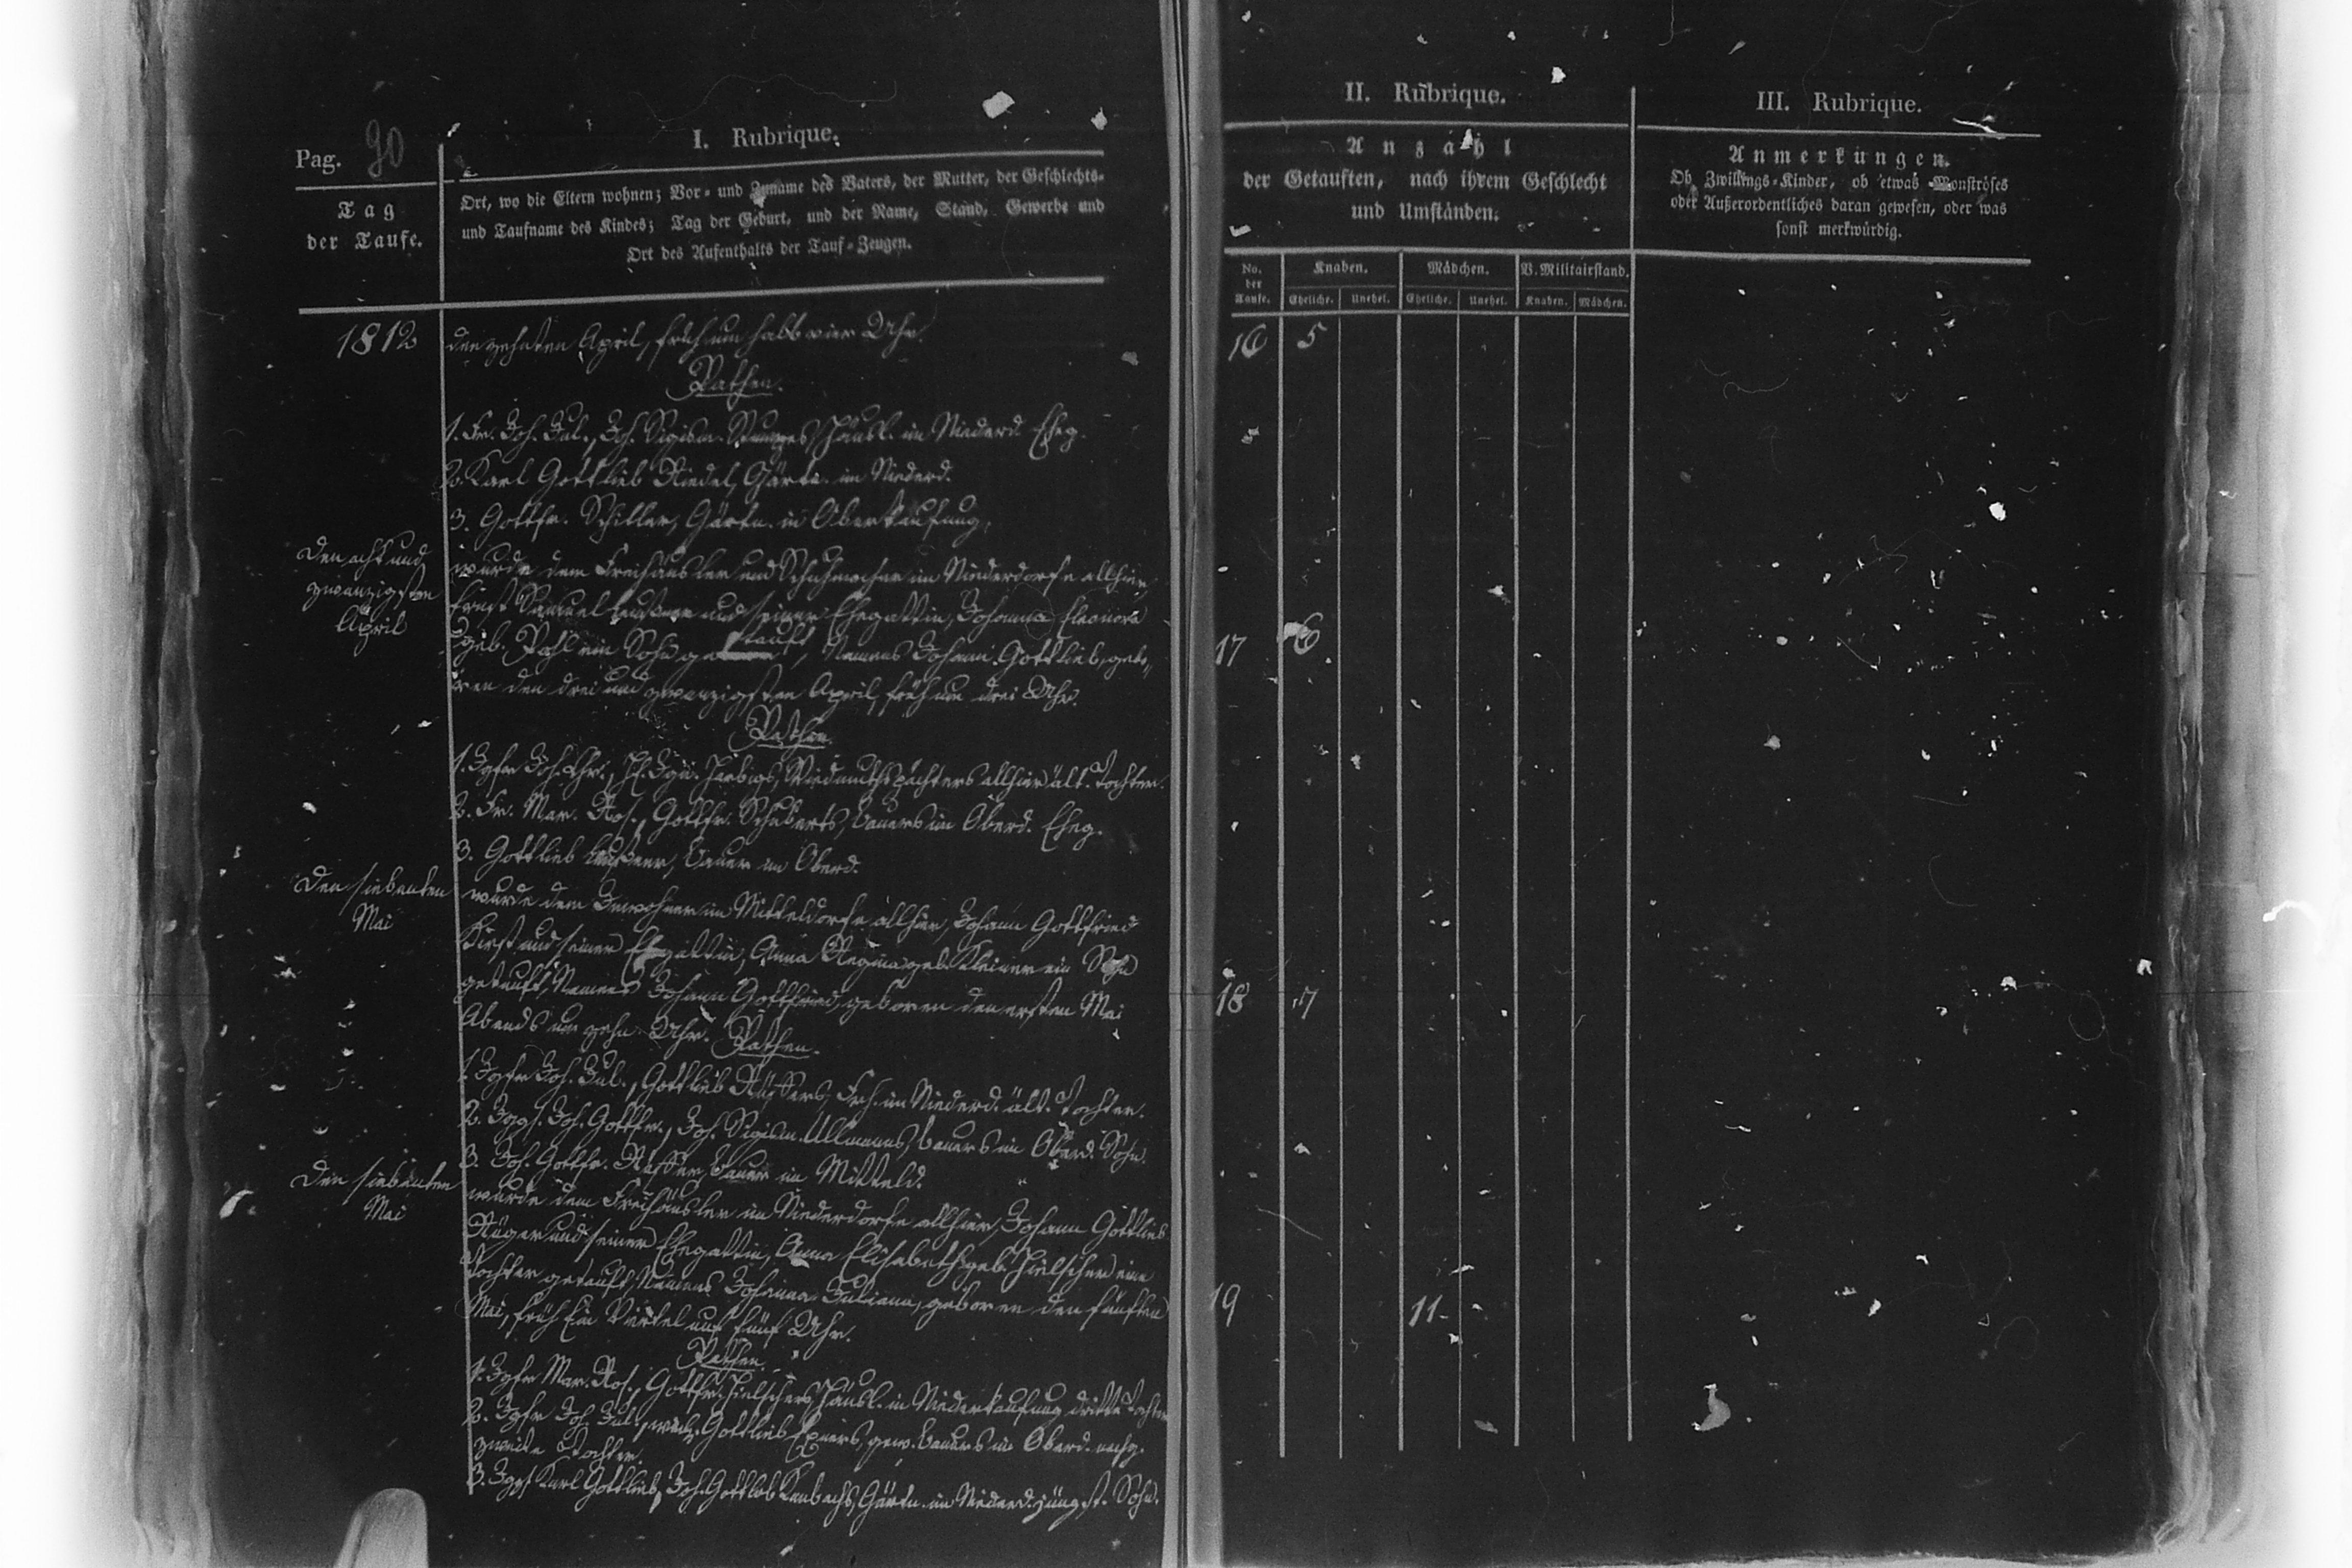 Pag. 90
I. Rubrique.
Tag
der Taufe.
Ort, wo die Eltern wohnen; Vor- und Zuname des Vaters, der Mutter, der Geschlechts-
und Taufname des Kindes; Tag der Geburt, und der Name, Stand, Gewerbe und
Ort des Aufenthalts der Tauf-Zeugen.
1812
den zehnten April, früh um halb vier Uhr.
Pathen.
1. Fr. Joh. Jul., Joh. Sigism. Häusl. im Niederd. Eheg.
2. Karl Gottlieb Riedel, Gärtn. im Niederd.
3. Gottfr. Schiller, Gärtn. in Oberkaufung.
Den acht und
zwanzigsten
April
wurde dem Freihäusler und Schuhmacher im Niederdorfe allhier,
Ernst Samuel und seiner Ehegattin, Johanna Eleonore
geb. Pohl ein Sohn getauft, Namens Johann Gottlieb, gebo-
ren den drei und zwanzigsten April, früh um drei Uhr.
Pathen.
1. Jgfr. Joh. Chr., allhier ält. Tochter.
2. Fr. Mar. Ros., Gottfr. Schuberts, Bauers im Oberd. Eheg.
3. Gottlieb Bauer im Oberd.
Den siebenten
Mai
wurde dem Inwohner im Mitteldorfe allhier, Johann Gottfried
und seiner Ehegattin, Anna Regina geb. Kleiner ein Sohn
getauft, Namens Johann Gottfried, geboren den ersten Mai
Abends um zehn Uhr. Pathen.
1. Jgfr. Joh. Jul., Gottlieb Frh. im Niederd. ält. Tochter.
2. Jggs. Joh. Gottfr., Joh. Sigism. Ullmanns, Bauers im Oberd. Sohn.
3. Joh. Gottfr. Bauer im Mitteld.
Den siebenten
Mai
wurde dem Freihäusler im Niederdorfe allhier, Johann Gottlieb
und seiner Ehegattin, Anna Elisabeth geb. Hielscher eine
Tochter getauft, Namens Johanna Juliana, geboren den fünften
Mai, früh Ein Viertel auf fünf Uhr.
Pathen.
1. Jgfr. Mar. Ros., Gottfr. Hielschers, Häusl. in Niederkaufung dritte Tochter
2. Jgfr. Joh. Jul., weil. Gottlieb Exners, gew. Bauers im Oberd. nachg.
zweite Tochter.
3. Jggs. Karl Gottlieb, Joh. Gottlob Gärtn. im Niederd. jüngst. Sohn.
II. Rubrique.
Anzahl
der Getauften, nach ihrem Geschlecht
und Umständen.
No. der Taufe.
Knaben.
Mädchen.
V. Militairstand.
Eheliche. Unehel. Eheliche. Unehel. Knaben. Mädchen.
16 5
17 6
18 7
19 11
III. Rubrique.
Anmerkungen.
Ob Zwillings-Kinder, ob etwas Monströses
oder Außerordentliches daran gewesen, oder was
sonst merkwürdig.